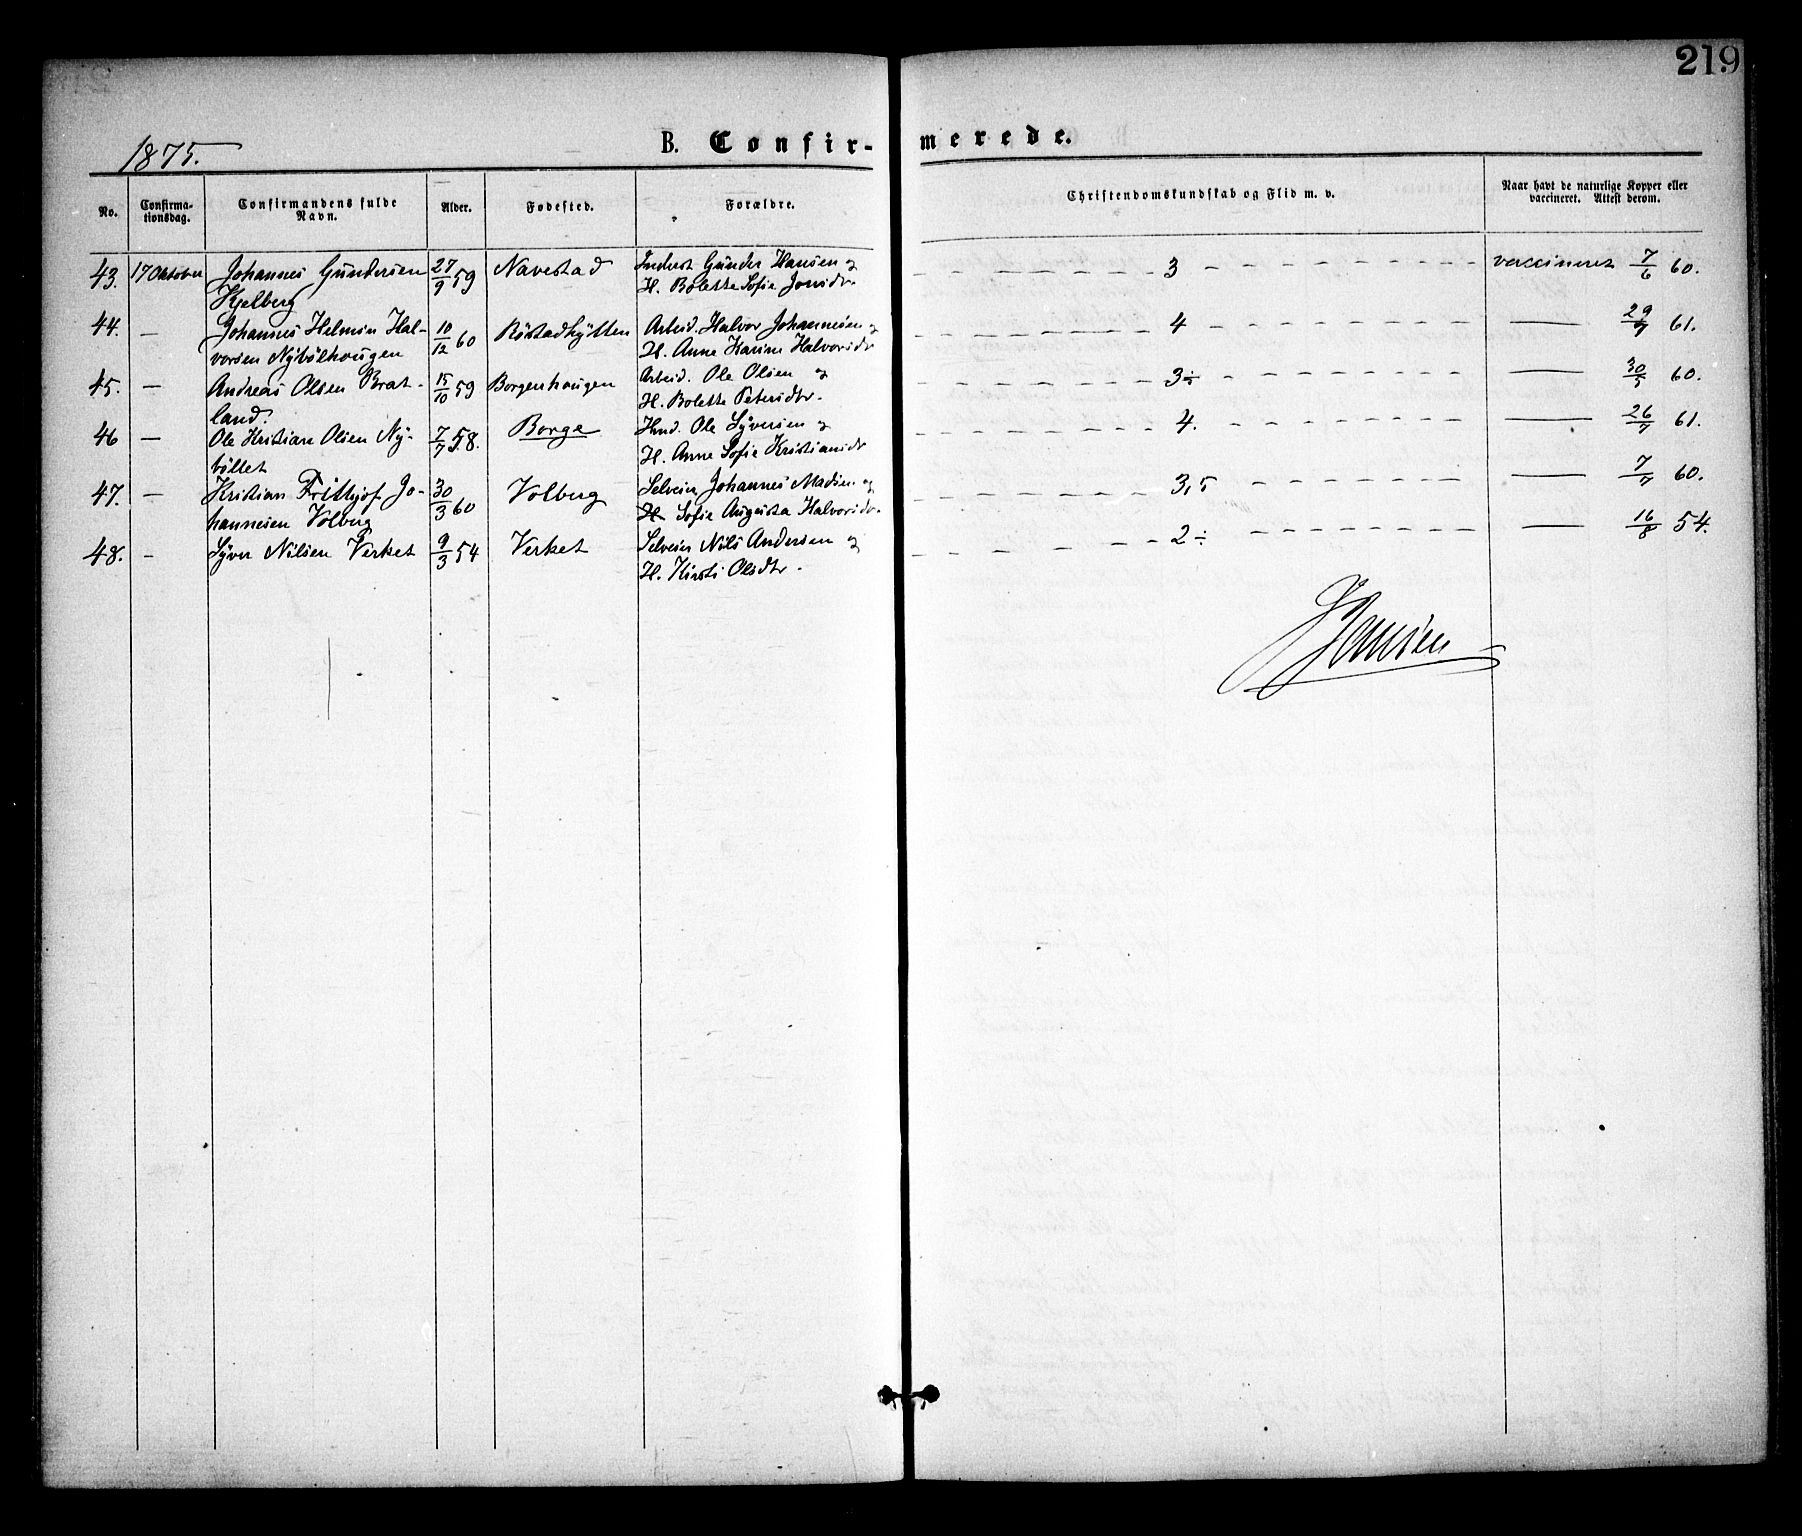 219
1875.
B. Confir-merede.
No. Confirma-tionsdag. Confirmandens fulde Navn. Alder. Fødested. Forældre. Christendomskundskab og Flid m. v. Naar havt de naturlige Kopper eller vaccineret. Attest derom.
43. 17 Oktober Johannes Gundersen 27/9 59 Navestad Inderst Gunder Hansen og 3 vaccineret 7/6 60.
Kjelberg H. Bolette Sofie Jonsdr.
44. — Johannes Helmin Hal- 10/12 60 Röstadhytten Arbeid. Halvor Johannesen og 4 — 29/7 61.
vorsen Nÿbölhougen H. Anne Karine Halvorsdr
45. — Andreas Olsen Brat- 15/10 59 Borgenhougen Arbeid. Ole Olsen og 3÷ — 30/5 60.
land. H. Bolette Petersdtr.
46 — Ole Kristian Olsen Nÿ- 7/7 58. Borge Hmd. Ole Syversen og 4. — 26/7 61.
böllet H. Anne Sofie Kristiansdr
47. — Kristian Frithjof Jo- 30/3 60 Volberg Selveier Johannes Madsen og 3,5 — 7/7 60.
hannesen Volberg H Sofie Augusta Halvorsdr.
48. — Syver Nilsen Verket 9/3 54 Verket Selveier Nils Andersen og 2÷ — 16/8 54.
H. Kirsti Olsdtr.